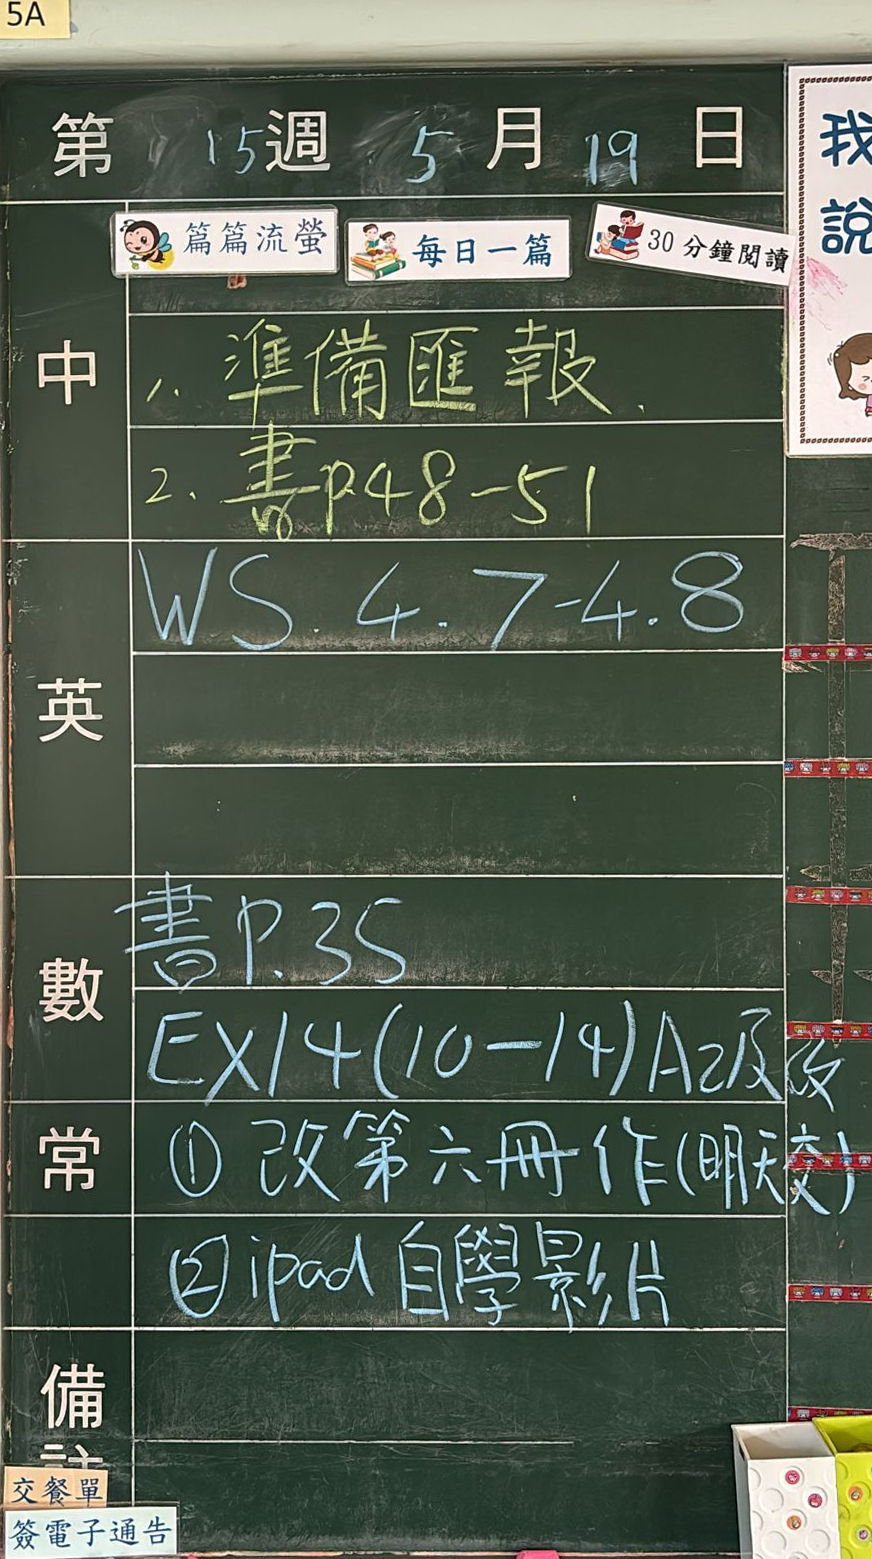 5A
第15週5月19日
我
說
篇篇流螢
每日一篇
30分鐘閱讀
中
1. 準備匯報.
2. 書P.48-51
英
WS. 4.7-4.8
數
書P.35
EX14(10-14)A2及改
常
① 改第六冊作(明天交)
② ipad自學影片
備
註
交餐單
簽電子通告